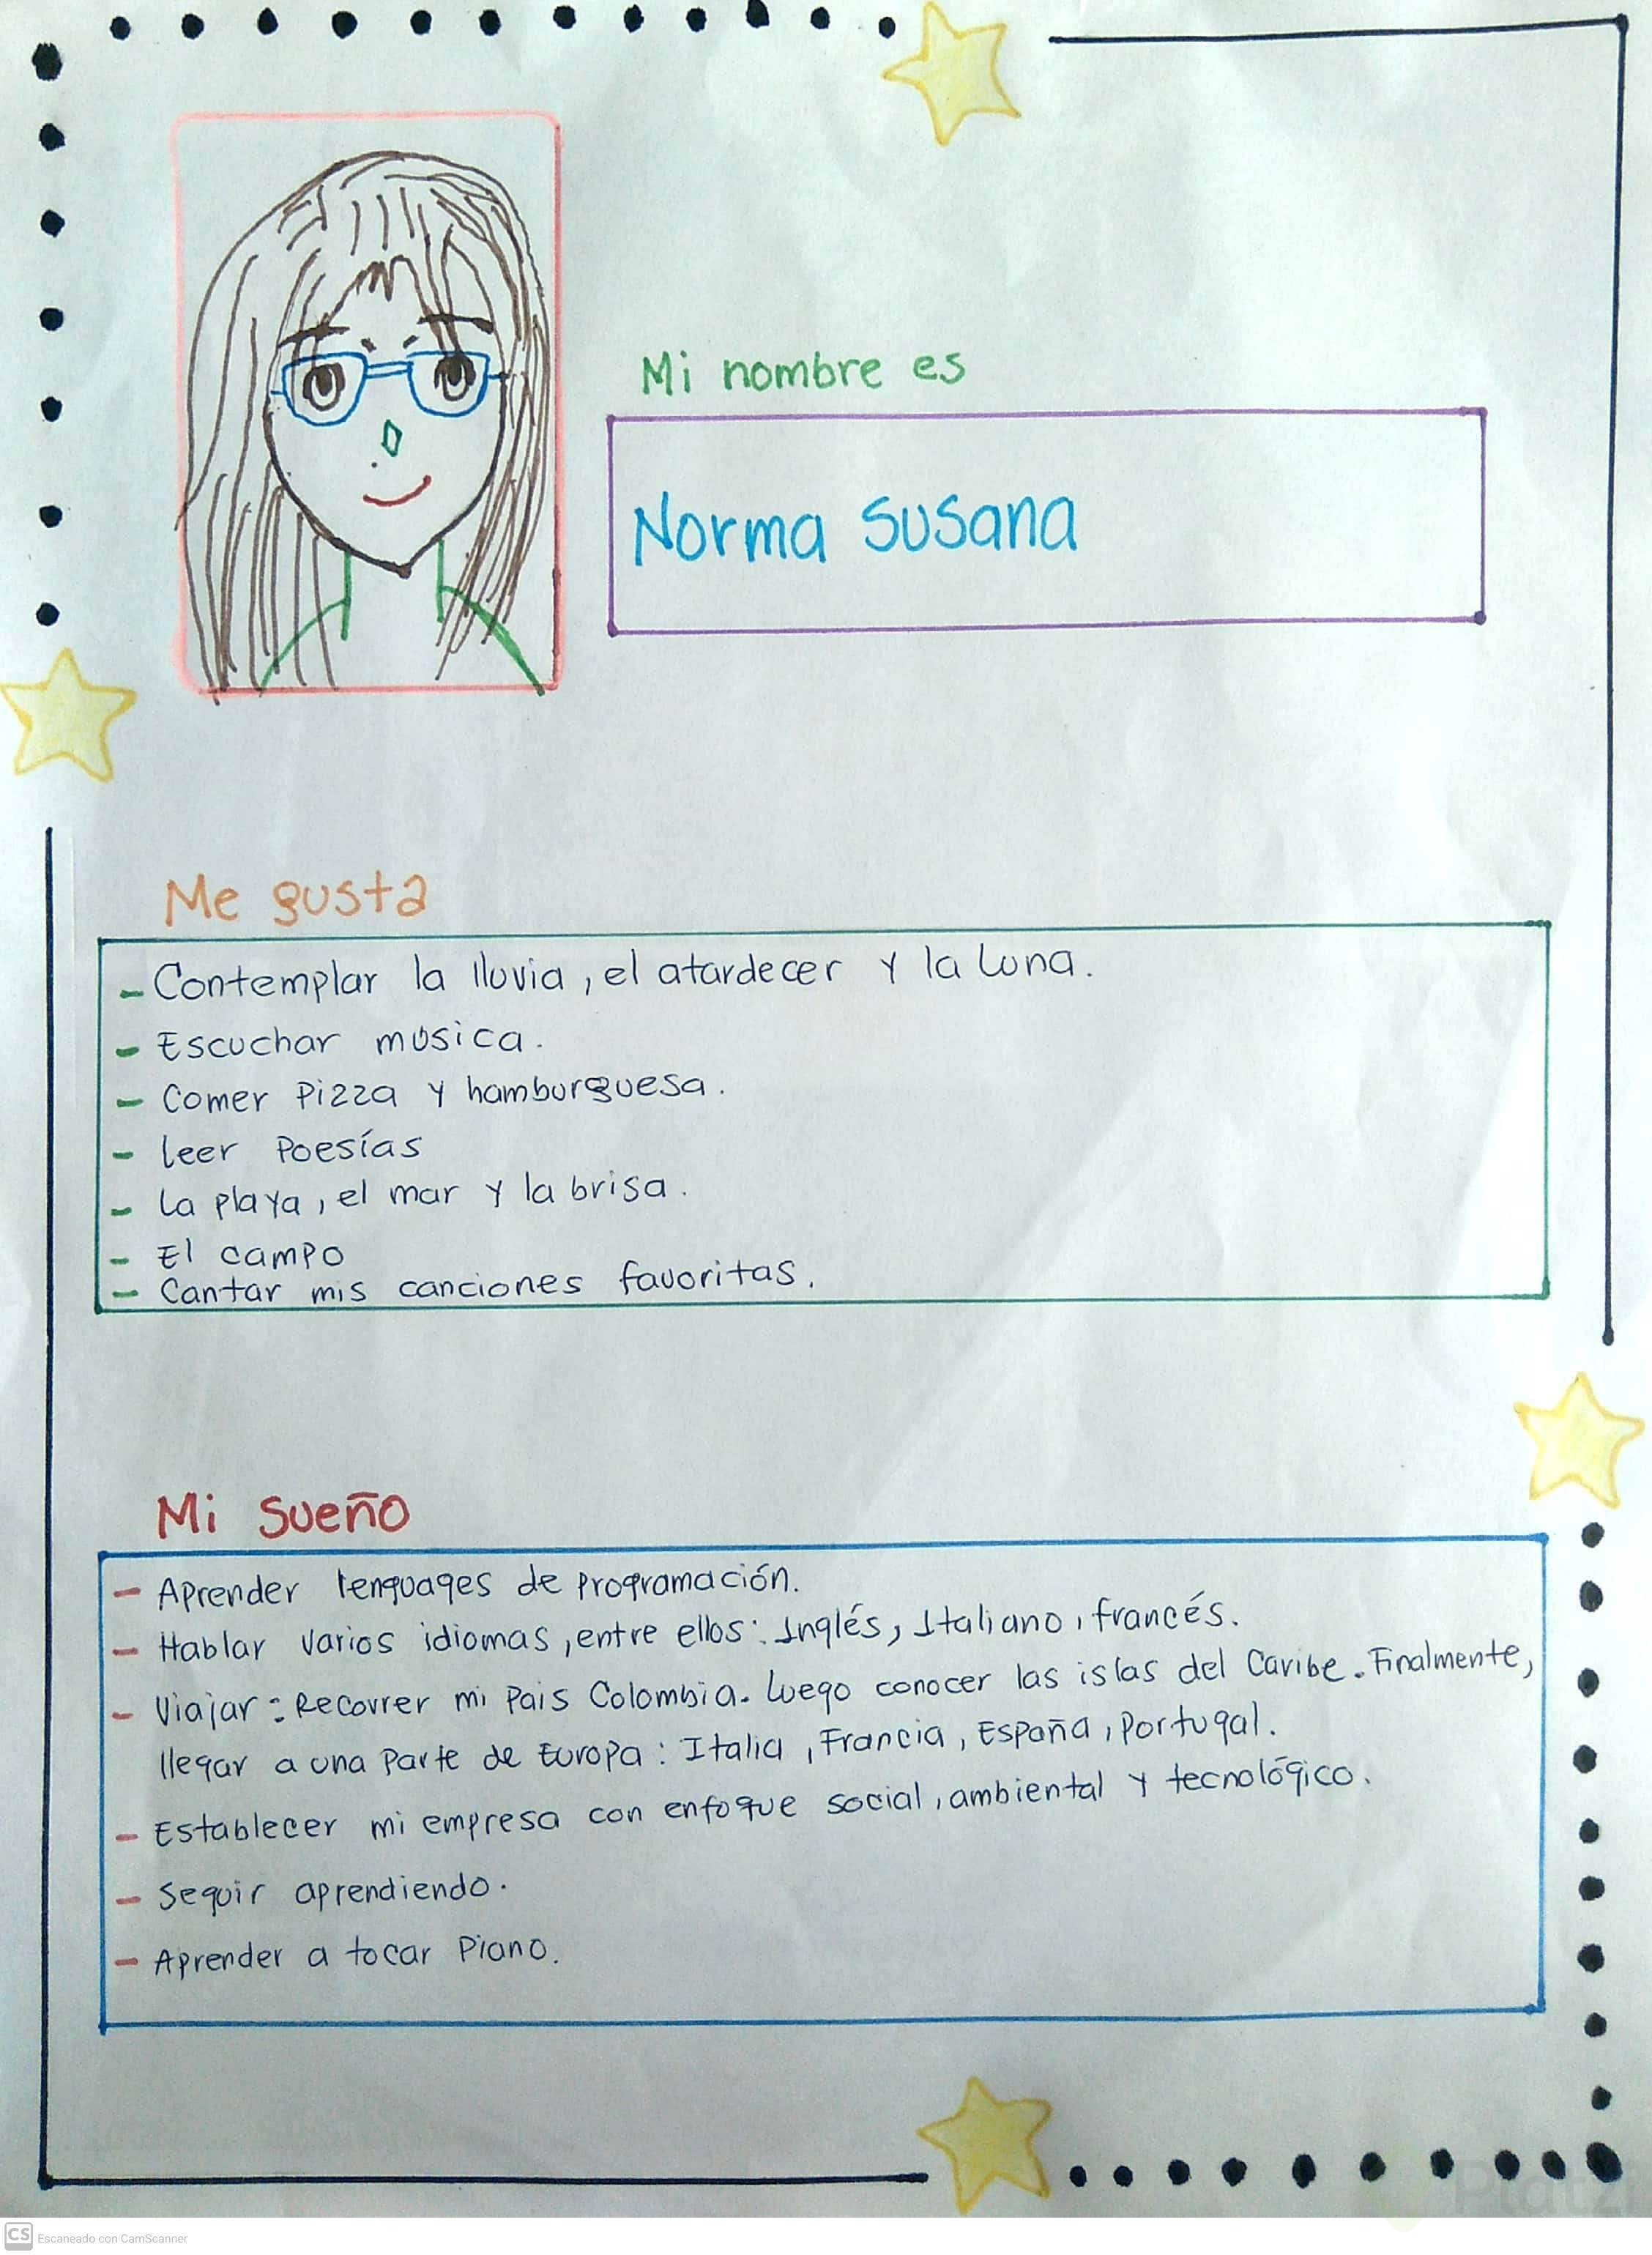 Mi nombre es
Norma Susana
Me gusta
- Contemplar la lluvia, el atardecer y la luna.
- Escuchar música.
- Comer pizza y hamburguesa.
- leer poesías
- La playa, el mar y la brisa.
- El campo
- Cantar mis canciones favoritas.
Mi sueño
- Aprender lenguages de programación.
- Hablar varios idiomas, entre ellos: Inglés, Italiano, francés.
- Viajar: Recorrer mi País Colombia. Luego conocer las islas del Caribe. Finalmente,
llegar a una parte de Europa: Italia, Francia, España, Portugal.
- Establecer mi empresa con enfoque social, ambiental y tecnológico.
- Seguir aprendiendo.
- Aprender a tocar Piano.
Platzi
CS Escaneado con CamScanner